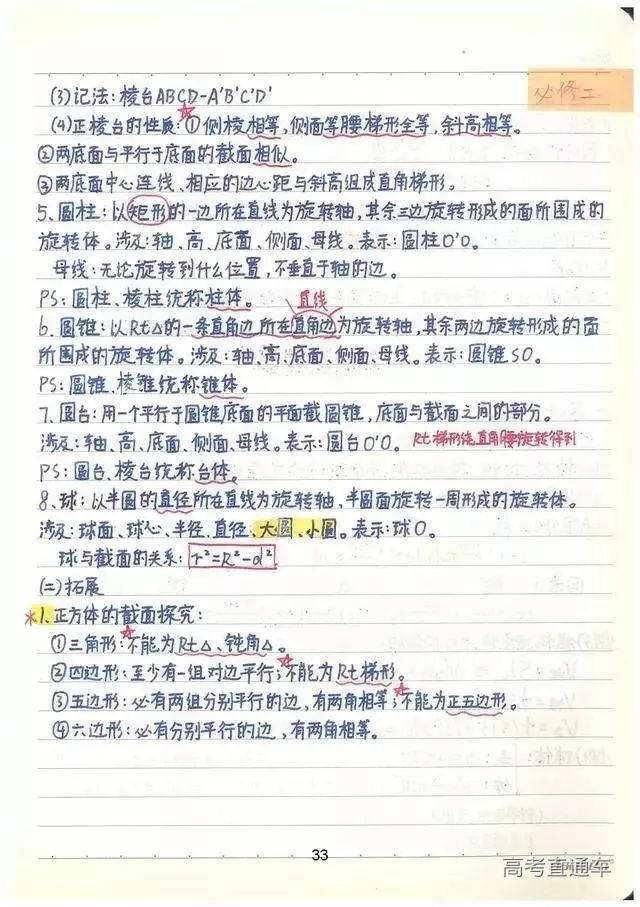 必修二
(3)记法:棱台ABCD-A'B'C'D'
(4)正棱台的性质:①侧棱相等,侧面等腰梯形全等,斜高相等。
②两底面与平行于底面的截面相似。
③两底面中心连线、相应的边心距与斜高组成直角梯形。
5、圆柱:以矩形的一边所在直线为旋转轴,其余三边旋转形成的面所围成的
旋转体。涉及:轴、高、底面、侧面、母线。表示:圆柱O'O。
母线:无论旋转到什么位置,不垂直于轴的边。
PS:圆柱、棱柱统称柱体。
直线
6、圆锥:以Rt△的一条直角边所在直角边为旋转轴,其余两边旋转形成的面
所围成的旋转体。涉及:轴、高、底面、侧面、母线。表示:圆锥SO。
PS:圆锥、棱锥统称锥体。
7、圆台:用一个平行于圆锥底面的平面截圆锥,底面与截面之间的部分。
涉及:轴、高、底面、侧面、母线。表示:圆台O'O。 Rt梯形绕直角腰旋转得到
PS:圆台、棱台统称台体。
8、球:以半圆的直径所在直线为旋转轴,半圆面旋转一周形成的旋转体。
涉及:球面、球心、半径、直径、大圆、小圆。表示:球O。
球与截面的关系:r²=R²-d²
(二)拓展
*1、正方体的截面探究:
①三角形:不能为Rt△、钝角△。
②四边形:至少有一组对边平行;不能为Rt梯形。
③五边形:必有两组分别平行的边,有两角相等;不能为正五边形。
④六边形:必有分别平行的边,有两角相等。
33
高考直通车